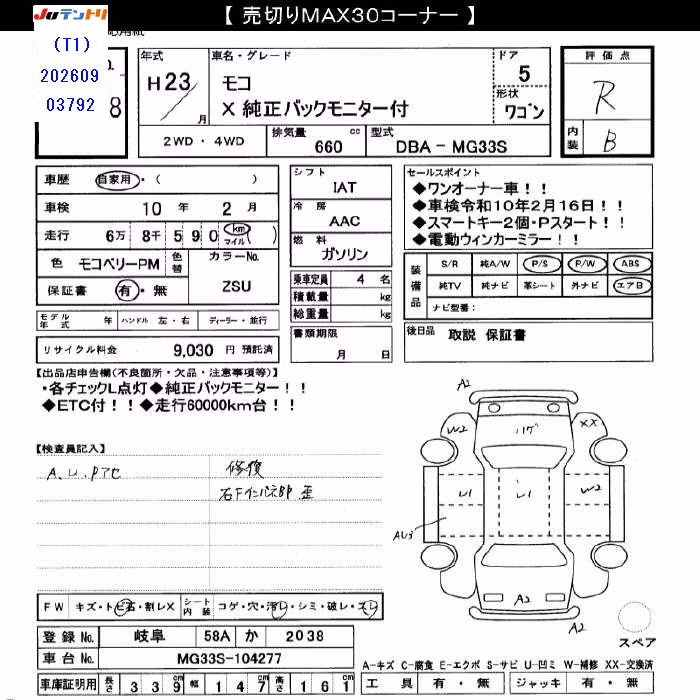 【 売切りMAX30コーナー 】
JUテントリ
(T1)
202609
03792
8
年式
H23
月
車名・グレード
モコ
X 純正バックモニター付
ドア
5
形状
ワゴン
評価点
R
内装
B
2WD ・ 4WD
排気量
660 cc
型式
DBA - MG33S
車歴 自家用・( )
車検 10 年 2 月
走行 6万 8千 5 9 0 km マイル
色 モコベリーPM 色替
カラーNo.
ZSU
保証書 有 ・ 無
シフト
IAT
冷房
AAC
燃料
ガソリン
乗車定員 4 名
積載量 kg
総重量 kg
書類期限
月 日
セールスポイント
◆ワンオーナー車！！
◆車検令和10年2月16日！！
◆スマートキー2個・Pスタート！！
◆電動ウィンカーミラー！！
装備品
S/R 純A/W P/S P/W ABS
純TV 純ナビ 革シート 外ナビ エアB
ナビ型番:
後日品 取説 保証書
モデル年式 年 ハンドル 左・右 ディーラー・並行
リサイクル料金 9,030 円 預託済
【出品店申告欄(不良箇所・欠品・注意事項等)】
・各チェックL点灯◆純正バックモニター！！
◆ETC付！！◆走行60000km台！！
【検査員記入】
A、U、Pアセ
修復
右Fインパネ部 歪
A2
W2
ハゲ
XX
U1
U1
W2
AU3
A2
A2
スペア
FW キズ・トビ石・割レX
シート内装 コゲ・穴・汚レ・シミ・破レ・スレ
登録No. 岐阜 58A か 2038
車台No. MG33S-104277
車庫証明用 長さ 3 3 9 幅 1 4 7 高さ 1 6 1 cm
A-キズ C-腐食 E-エクボ S-サビ U-凹ミ W-補修 XX-交換済
工具 有 ・ 無 ジャッキ 有 ・ 無